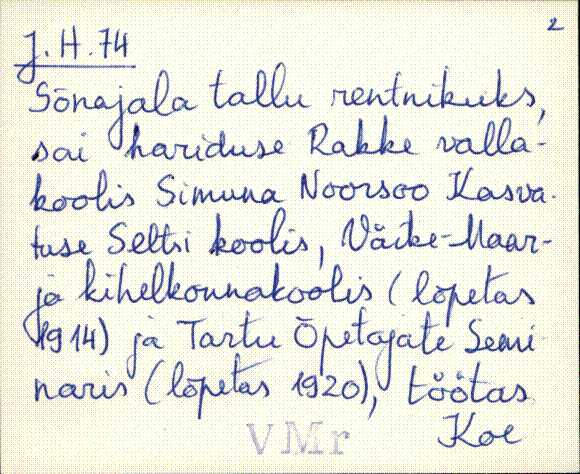 2
J. H. 74
Sõnajala tallu rentnikuks,
sai hariduse Rakke valla-
koolis Simuna Noorsoo Kasva-
tuse Seltsi koolis, Väike-Maar-
ja kihelkonnakoolis (lõpetas
1914) ja Tartu Õpetajate Semi
naris (lõpetas 1920), töötas
Koe
VMr